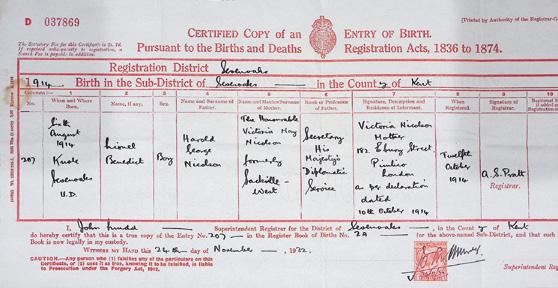 D 037869
[Printed by Authority of the Registrar-
CERTIFIED COPY of an ENTRY OF BIRTH.
The Statutory Fee for this Certificate is
Pursuant to the Births and Deaths Registration Acts, 1836 to 1874.
Registration District Sevenoaks
1914. Birth in the Sub-District of Sevenoaks in the County of Kent
Columns:— 1 2 3 4 5 6 7 8 9 10
No. When and Where Born. Name, if any. Sex. Name and Surname of Father. Name and Maiden Surname of Mother. Rank or Profession of Father. Signature, Description and Residence of Informant. When Registered. Signature of Registrar.
207
Sixth August 1914 Knole Sevenoaks U.D.
Lionel Benedict
Boy
Harold George Nicolson
The Honourable Victoria May Nicolson formerly Sackville-West
Secretary His Majesty's Diplomatic Service
Victoria Nicolson Mother 182 Ebury Street, Pimlico London as per declaration dated 10th October 1914
Twelfth October 1914
A.S. Pratt Registrar.
I, John Superintendent Registrar for the District of Sevenoaks, in the County of Kent
do hereby certify that this is a true copy of the Entry No. 207 in the Register Book of Births No. 29 for the above-named Sub-District, and that such
Book is now legally in my custody.
WITNESS MY HAND this 24th day of November, 1932.
CAUTION.—Any person who (1) falsifies any of the particulars on this
Certificate, or (2) uses it as true, knowing it to be falsified, is liable
to Prosecution under the Forgery Act, 1913.
Superintendent Reg